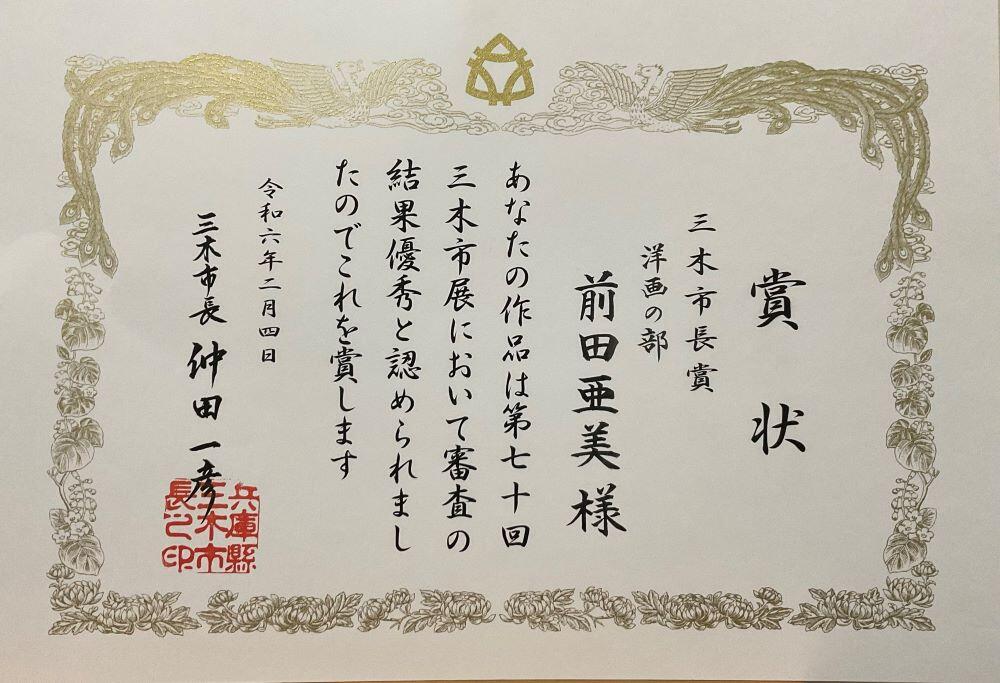 賞状
三木市長賞
洋画の部
前田亜美様
あなたの作品は第七十回
三木市展において審査の
結果優秀と認められまし
たのでこれを賞します
令和六年二月四日
三木市長 仲田一彦
兵庫縣
三木市
長之印